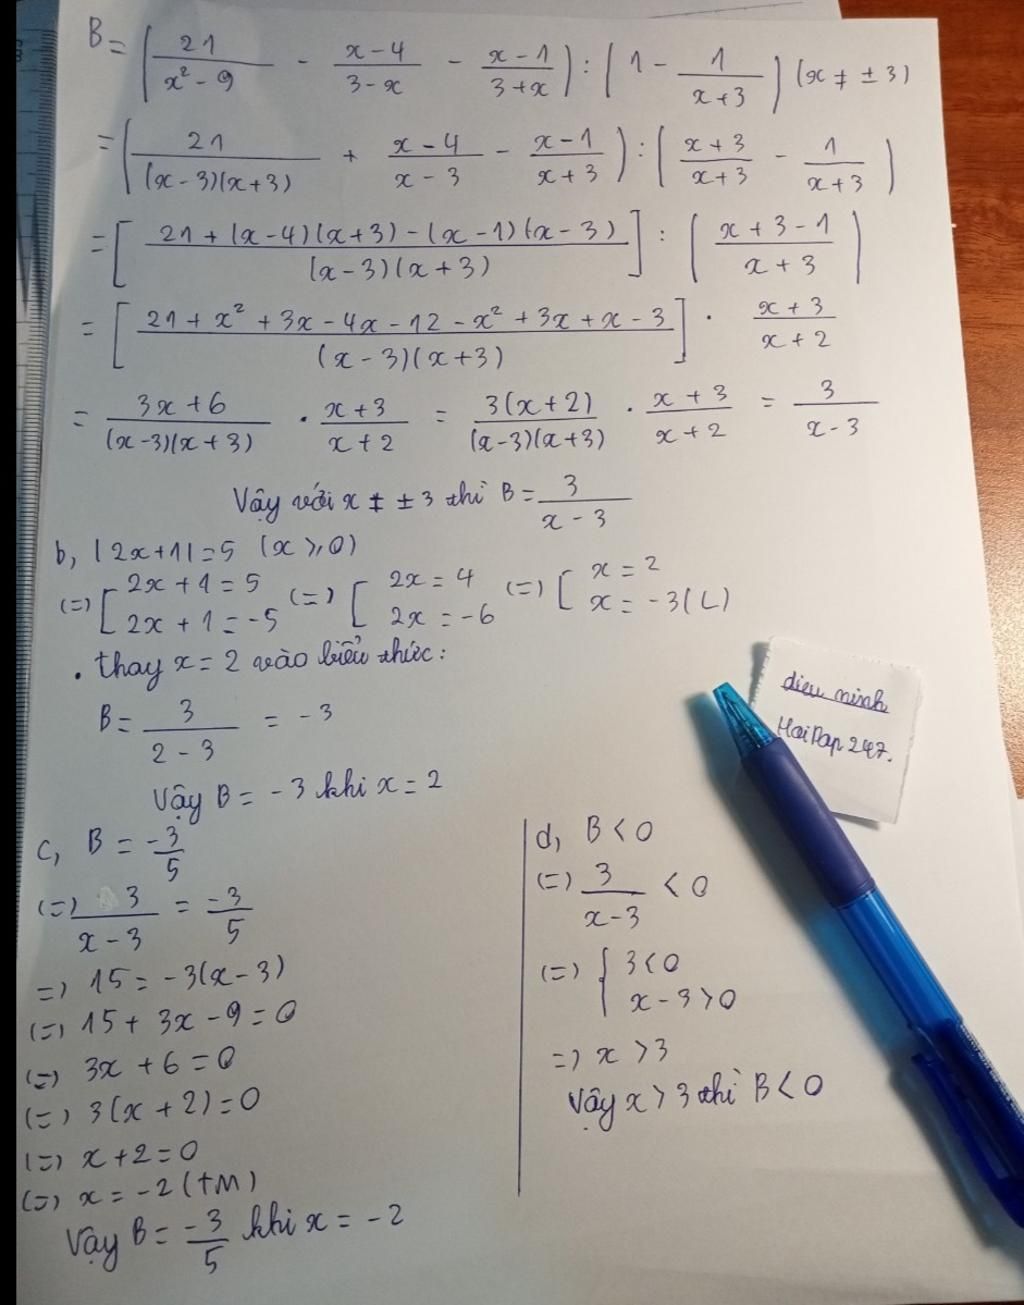 B = (21/(x² - 9) - (x - 4)/(3 - x) - (x - 1)/(3 + x)) : (1 - 1/(x + 3)) (x ≠ ± 3)
= (21/((x - 3)(x + 3)) + (x - 4)/(x - 3) - (x - 1)/(x + 3)) : ((x + 3)/(x + 3) - 1/(x + 3))
= [(21 + (x - 4)(x + 3) - (x - 1)(x - 3))/((x - 3)(x + 3))] : ((x + 3 - 1)/(x + 3))
= [(21 + x² + 3x - 4x - 12 - x² + 3x + x - 3)/((x - 3)(x + 3))] . (x + 3)/(x + 2)
= (3x + 6)/((x - 3)(x + 3)) . (x + 3)/(x + 2) = 3(x + 2)/((x - 3)(x + 3)) . (x + 3)/(x + 2) = 3/(x - 3)
Vậy với x ≠ ± 3 thì B = 3/(x - 3)
b, |2x + 1| = 5 (x ≥ 0)
(=) [ 2x + 1 = 5 (=) [ 2x = 4 (=) [ x = 2
2x + 1 = -5 2x = -6 x = -3 (L)
. thay x = 2 vào biểu thức:
B = 3/(2 - 3) = -3
Vậy B = -3 khi x = 2
c, B = -3/5
(=) 3/(x - 3) = -3/5
=) 15 = -3(x - 3)
(=) 15 + 3x - 9 = 0
(=) 3x + 6 = 0
(=) 3(x + 2) = 0
(=) x + 2 = 0
(=) x = -2 (TM)
Vậy B = -3/5 khi x = -2
d, B < 0
(=) 3/(x - 3) < 0
(=) { 3 < 0
x - 3 > 0
=) x > 3
Vậy x > 3 thì B < 0
dieu ninh
HoiDap 247.